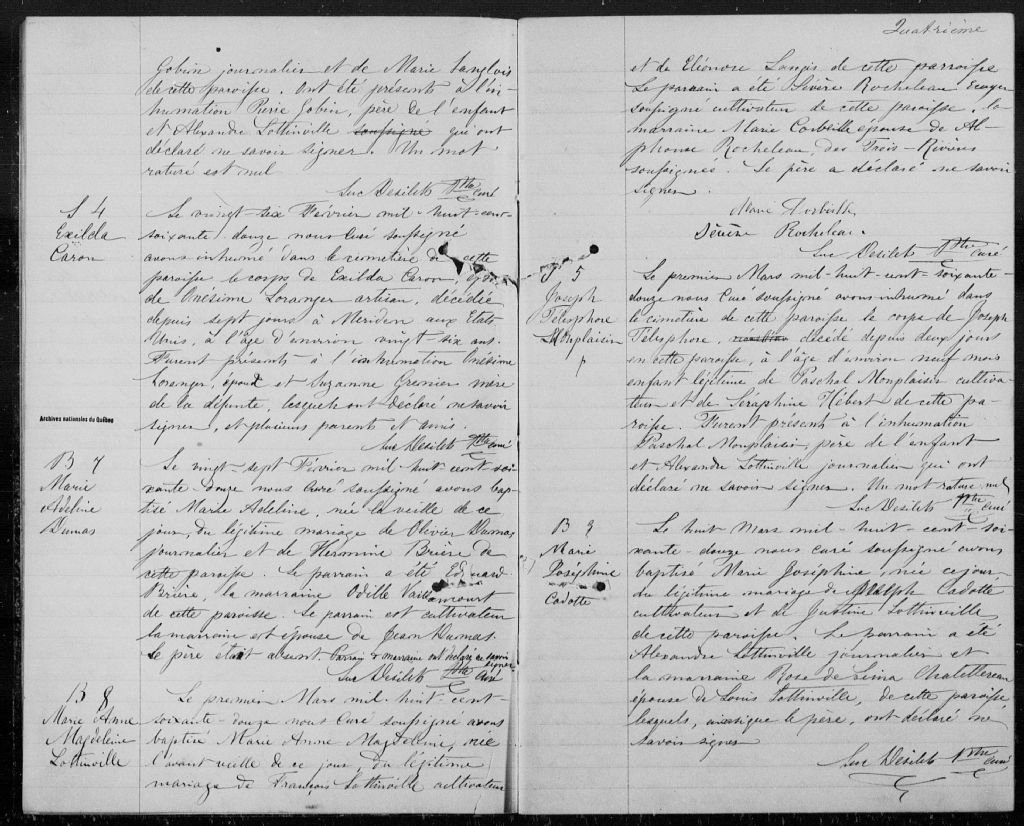 Gobin journalier et de Marie Langlois
de cette paroisse. Ont été présents à l'in-
humation Pierre Gobin, père de l'enfant
et Alexandre Lottinville soussigné qui ont
déclaré ne savoir signer. Un mot
raturé est nul
Luc Desilets Ptre Curé
S 4
Exilda
Caron
Le vingt-six Février mil-huit-cent-
soixante-douze nous Curé soussigné
avons inhumé dans le cimetière de cette
paroisse le corps de Exilda Caron,
de Onésime Loranger artisan, décédée
depuis sept jours à Meriden aux Etats
Unis, à l'âge d'environ vingt-six ans.
Furent présents à l'inhumation Onésime
Loranger, époux et Suzanne Grenier mère
de la défunte, lesquels ont déclaré ne savoir
signer, et plusieurs parents et amis.
Luc Desilets Ptre Curé
Archives nationales du Québec
B 7
Marie
Adeline
Dumas
Le vingt-sept Février mil huit cent soi-
xante-douze nous Curé soussigné avons bap-
tisé Marie Adeline, née la veille de ce
jour, du légitime mariage de Olivier Dumas
journalier et de Hermine Brière de
cette paroisse. Le parrain a été Edouard
Brière, la marraine Odille Vaillancourt
de cette paroisse. Le parrain est cultivateur
la marraine est épouse de Jean Dumas.
Le père était absent. Parrain & marraine ont déclaré ne savoir
signer
Luc Desilets Ptre Curé
B 8
Marie Anne
Magdeleine
Lottinville
Le premier Mars mil-huit-cent-
soixante-douze nous Curé soussigné avons
baptisé Marie Anne Magdeleine, née
l'avant veille de ce jour, du légitime
mariage de François Lottinville cultivateur
Quatrième
et de Eléonore Langis de cette parroisse
Le parrain a été Sévère Rocheleau Ecuyer
soussigné cultivateur de cette paroisse, la
marraine Marie Corbeille épouse de Al-
phonse Rocheleau, des Trois-Rivières
soussignés. Le père a déclaré ne savoir
signer.
Marie Corbeille
Sévère Rocheleau
Luc Desilets Ptre Curé
S 5
Joseph
Télesphore
Monplaisir
Le premier Mars mil-huit-cent-soixante-
douze nous Curé soussigné avons inhumé dans
le cimetière de cette paroisse le corps de Joseph
Télesphore, décédé depuis deux jours
en cette paroisse, à l'âge d'environ neuf mois
enfant légitime de Paschal Monplaisir cultiva-
teur et de Séraphine Hébert de cette pa-
roisse. Furent présents à l'inhumation
Paschal Monplaisir, père de l'enfant
et Alexandre Lottinville journalier qui ont
déclaré ne savoir signer. Un mot raturé nul
Luc Desilets Ptre Curé
B 9
Marie
Joséphine
Cadotte
Le huit Mars mil-huit-cent-soi-
xante-douze nous curé soussigné avons
baptisé Marie Joséphine, née ce jour
du légitime mariage de Adolph Cadotte
cultivateur et de Justine Lottinville
de cette paroisse. Le parrain a été
Alexandre Lottinville journalier et
la marraine Rose de Lima Chatellereau
épouse de Louis Lottinville, de cette paroisse
lesquels, ainsi que le père, ont déclaré ne
savoir signer
Luc Desilets Ptre Curé